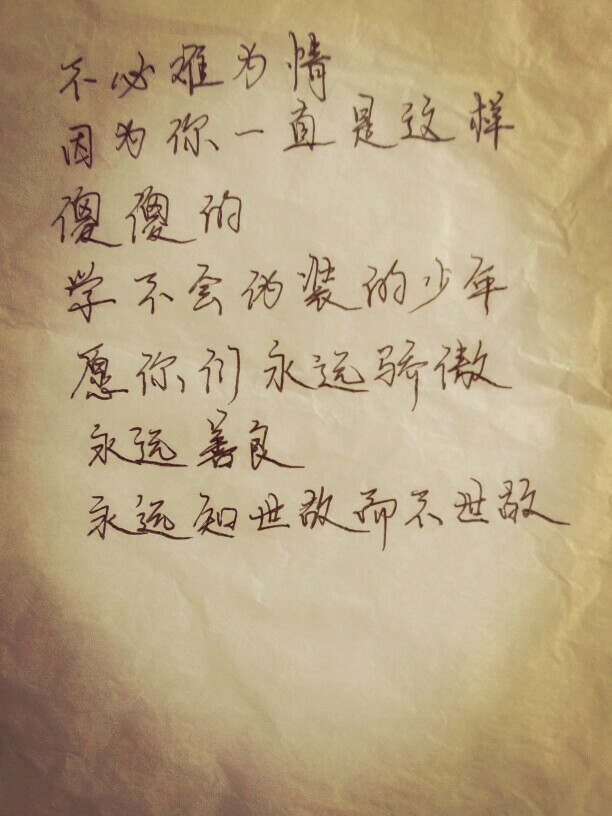 不必难为情
因为你一直是这样
傻傻的
学不会伪装的少年
愿你们永远骄傲
永远善良
永远知世故而不世故